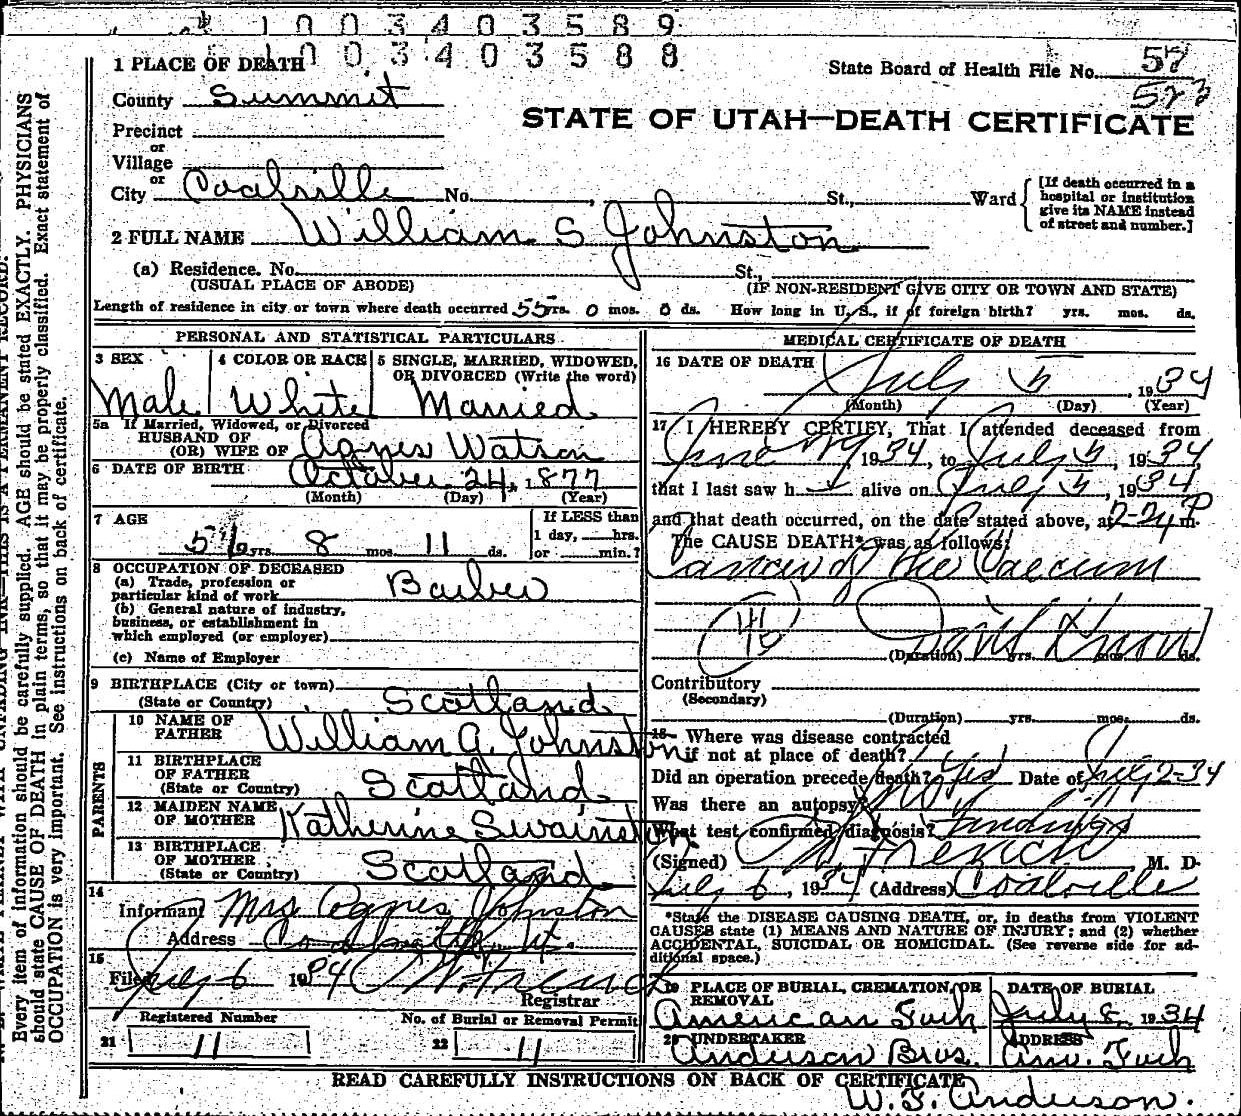 1003403589
1003403588
1 PLACE OF DEATH
State Board of Health File No. 57
523
County Summit
STATE OF UTAH—DEATH CERTIFICATE
Precinct
or
Village
or
City Coalville No. , St., Ward
[If death occurred in a hospital or institution give its NAME instead of street and number.]
2 FULL NAME William S Johnston
(a) Residence. No. St.,
(USUAL PLACE OF ABODE) (IF NON-RESIDENT GIVE CITY OR TOWN AND STATE)
Length of residence in city or town where death occurred 55 yrs. 0 mos. 0 ds. How long in U. S., if of foreign birth? yrs. mos. ds.
PERSONAL AND STATISTICAL PARTICULARS
3 SEX 4 COLOR OR RACE 5 SINGLE, MARRIED, WIDOWED, OR DIVORCED (Write the word)
Male White Married
5a If Married, Widowed, or Divorced
HUSBAND OF
(OR) WIFE OF Agnes Watson
6 DATE OF BIRTH October 24, 1877
(Month) (Day) (Year)
7 AGE If LESS than
1 day, hrs.
56 yrs. 8 mos. 11 ds. or min.?
8 OCCUPATION OF DECEASED
(a) Trade, profession or
particular kind of work Barber
(b) General nature of industry,
business, or establishment in
which employed (or employer)
(c) Name of Employer
9 BIRTHPLACE (City or town)
(State or Country) Scotland
PARENTS
10 NAME OF
FATHER William G. Johnston
11 BIRTHPLACE
OF FATHER
(State or Country) Scotland
12 MAIDEN NAME
OF MOTHER Katherine Swainston
13 BIRTHPLACE
OF MOTHER
(State or Country) Scotland
14
Informant Mrs. Agnes Johnston
Address Ut.
15
Filed July 6 1934 French
Registrar
Registered Number No. of Burial or Removal Permit
21 11 22 11
MEDICAL CERTIFICATE OF DEATH
16 DATE OF DEATH
July 5 1934
(Month) (Day) (Year)
17 I HEREBY CERTIFY, That I attended deceased from
June 1934, to July 5, 1934
that I last saw h alive on July 5, 1934
and that death occurred, on the date stated above, at 2-24 P m.
The CAUSE DEATH* was as follows:
Cancer of the Caecum
46
Don't Know
(Duration) yrs. mos. ds.
Contributory
(Secondary)
(Duration) yrs. mos. ds.
18 Where was disease contracted
if not at place of death?
Did an operation precede death? Yes Date of July 2-34
Was there an autopsy? No
What test confirmed diagnosis? Findings
(Signed) French M. D.
July 6, 1934 (Address) Coalville
*State the DISEASE CAUSING DEATH, or, in deaths from VIOLENT
CAUSES state (1) MEANS AND NATURE OF INJURY; and (2) whether
ACCIDENTAL, SUICIDAL OR HOMICIDAL. (See reverse side for ad-
ditional space.)
19 PLACE OF BURIAL, CREMATION, OR REMOVAL DATE OF BURIAL
American Fork July 8, 1934
20 UNDERTAKER ADDRESS
Anderson Bros. Am. Fork
READ CAREFULLY INSTRUCTIONS ON BACK OF CERTIFICATE
W. F. Anderson.
Every item of information should be carefully supplied. AGE should be stated EXACTLY. PHYSICIANS
should state CAUSE OF DEATH in plain terms, so that it may be properly classified. Exact statement of
OCCUPATION is very important. See instructions on back of certificate.